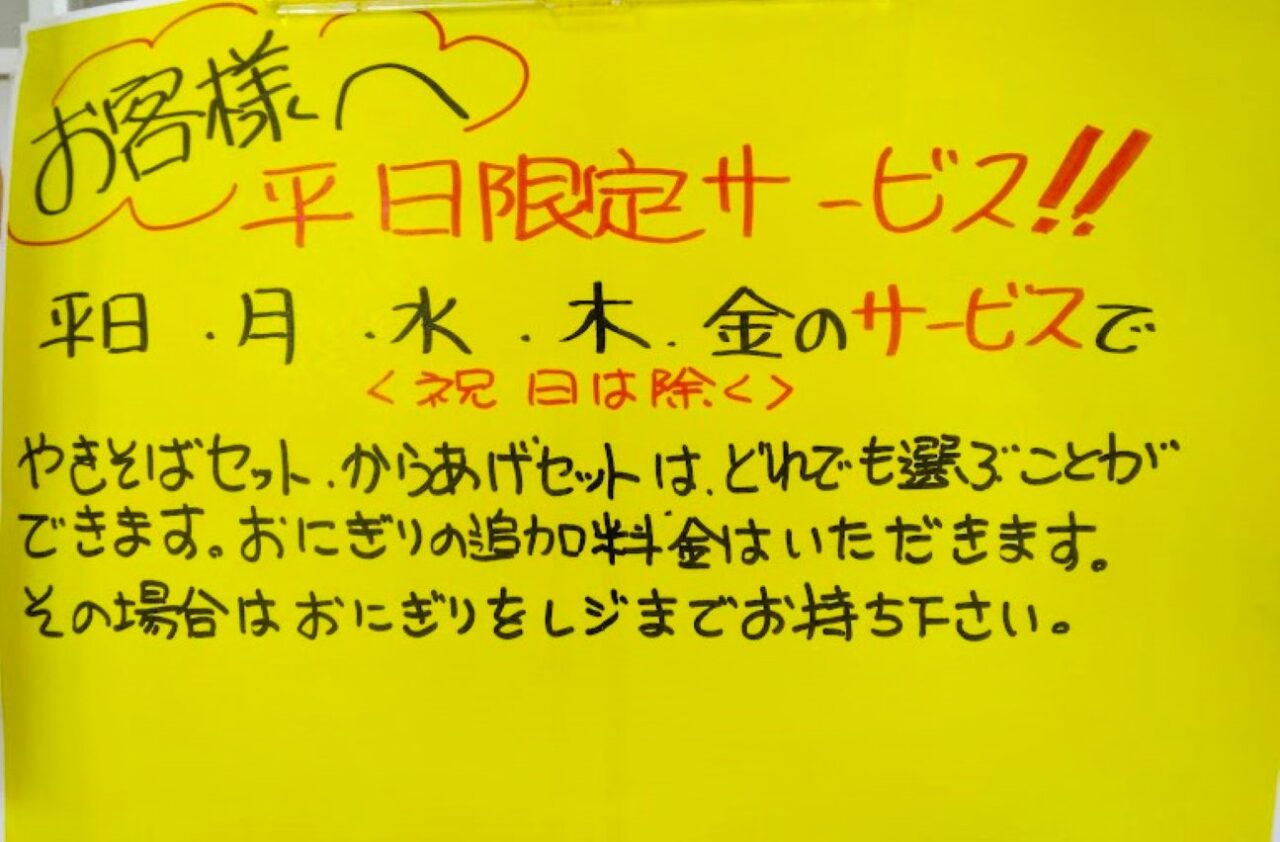 お客様へ
平日限定サービス!!
平日・月・水・木・金のサービスで
<祝日は除く>
やきそばセット、からあげセットは、どれでも選ぶことが
できます。おにぎりの追加料金はいただきます。
その場合はおにぎりをレジまでお持ち下さい。